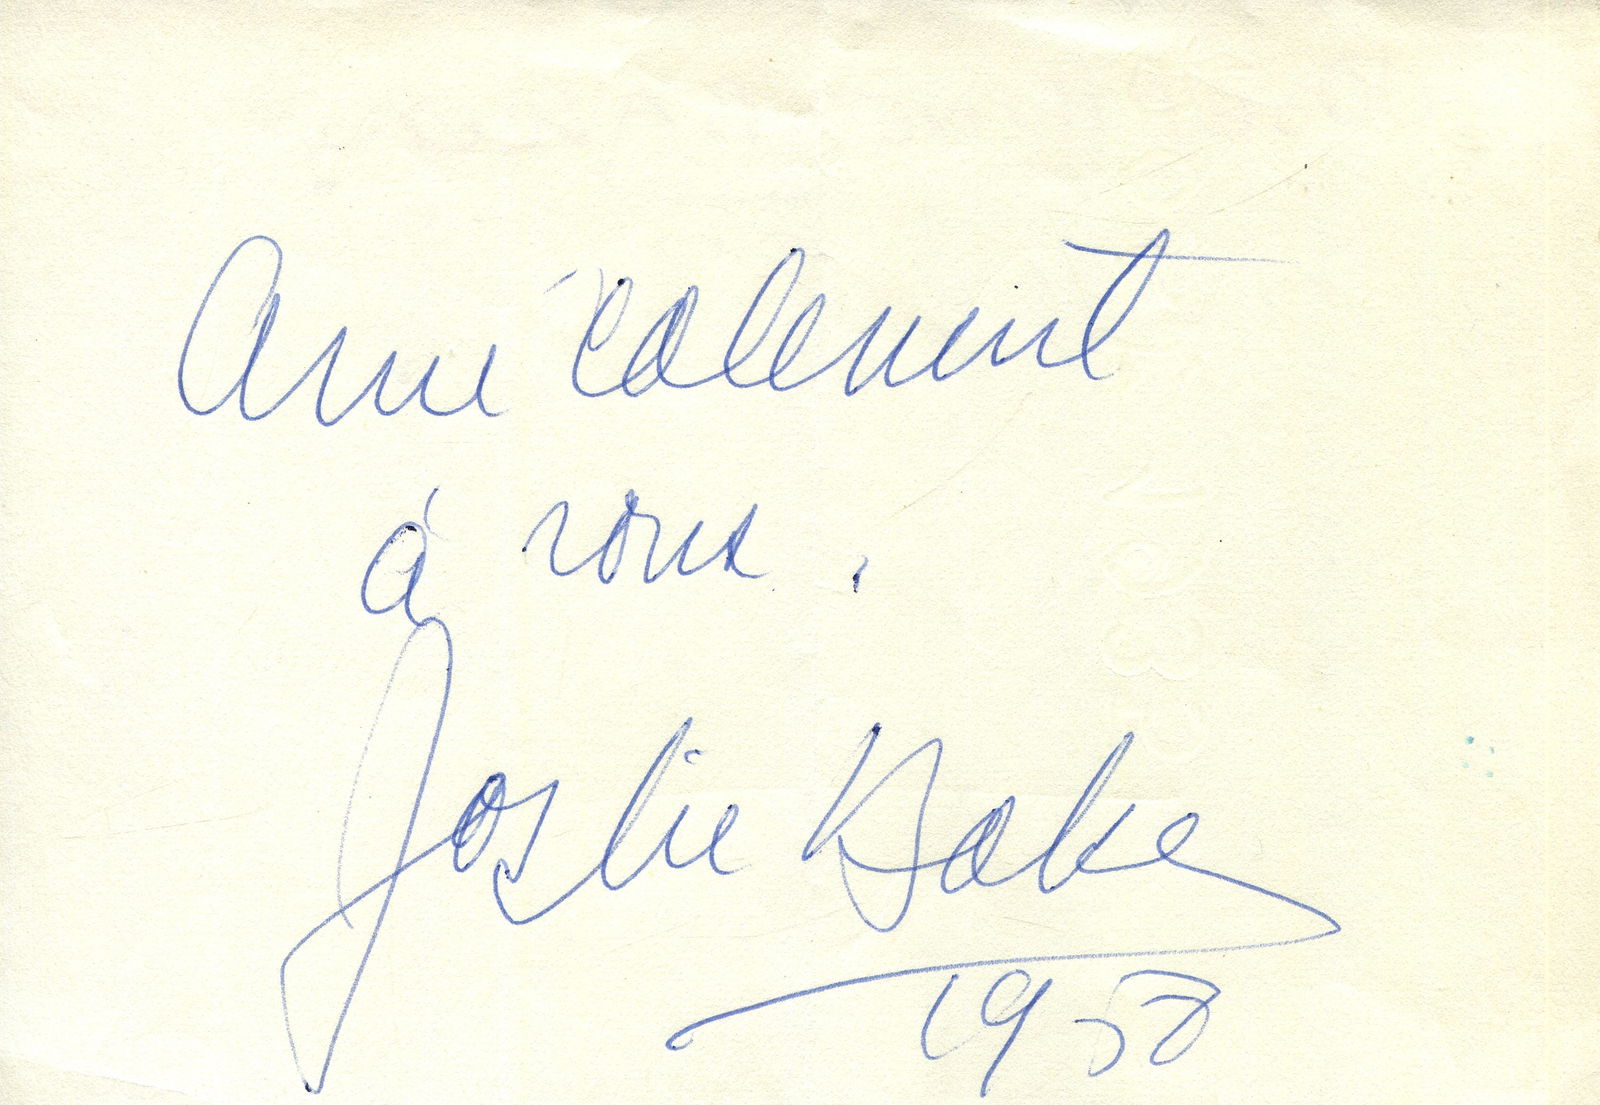 Amicalement
à vous.
Joséphine Baker
1958